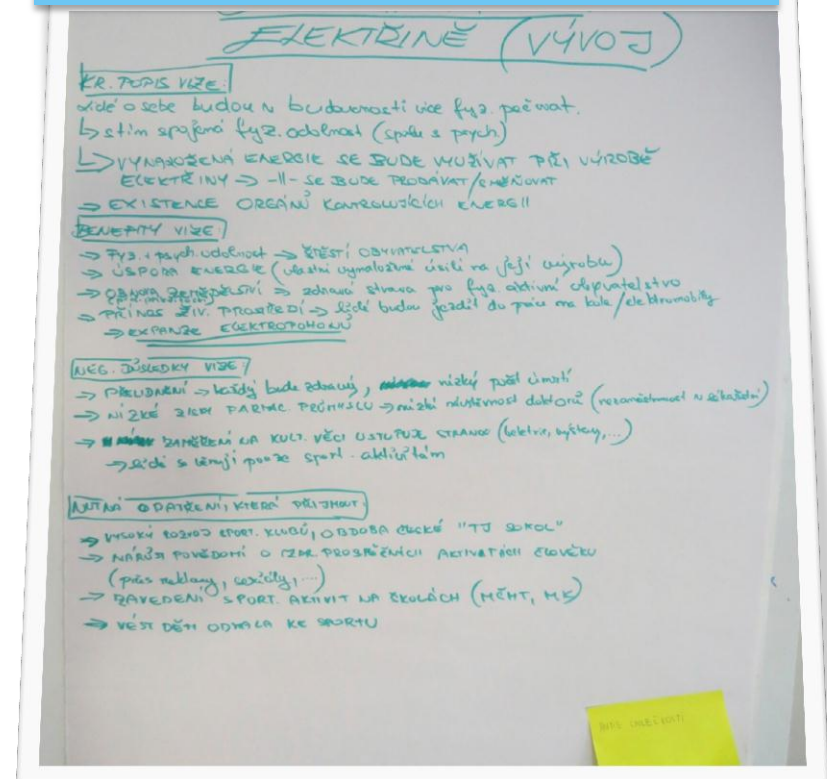 ELEKTŘINĚ (VÝVOJ)
KR. POPIS VIZE:
Lidé o sebe budou v budoucnosti více fyz. pečovat.
↳ s tím spojená fyz. odolnost (spolu s psych)
↳ VYNALOŽENÁ ENERGIE SE BUDE VYUŽÍVAT PŘI VÝROBĚ
ELEKTŘINY → -||- SE BUDE PRODÁVAT/SMĚŇOVAT
→ EXISTENCE ORGÁNŮ KONTROLUJÍCÍCH ENERGII
BENEFITY VIZE:
→ Fyz. i psych. odolnost → ŠTĚSTÍ OBYVATELSTVA
→ ÚSPORA ENERGIE (vlastní vynaložené úsilí na její výrobu)
→ OBNOVA ZEMĚDĚLSTVÍ → zdravá strava pro fyz. aktivní obyvatelstvo
→ PŘÍNOS ŽIV. PROSTŘEDÍ → lidé budou jezdit do práce na kole/elektromobily
→ EXPANZE ELEKTROPOHONŮ
NEG. DŮSLEDKY VIZE:
→ PŘELIDNĚNÍ → každý bude zdravý, nízký počet úmrtí
→ NÍZKÉ ZISKY FARMAC. PRŮMYSLU → nízká návštěvnost doktorů (nezaměstnanost v lékařství)
→ ZAMĚŘENÍ NA KULT. VĚCI USTUPUJE STRANOU (selektrie, výstavy,...)
→ lidé se věnují pouze sport. aktivitám
NUTNÁ OPATŘENÍ, KTERÁ PŘIJMOUT:
→ VYSOKÝ ROZVOJ SPORT. KLUBŮ, OBDOBA ČESKÉ "TJ SOKOL"
→ NÁRŮST POVĚDOMÍ O PROSPĚŠNÍCH AKTIVITÁCH ČLOVĚKU
(přes reklamy, seriály,...)
→ ZAVEDENÍ SPORT. AKTIVIT NA ŠKOLÁCH (MŠMT, MK)
→ VÉST DĚTI ODMALA KE SPORTU